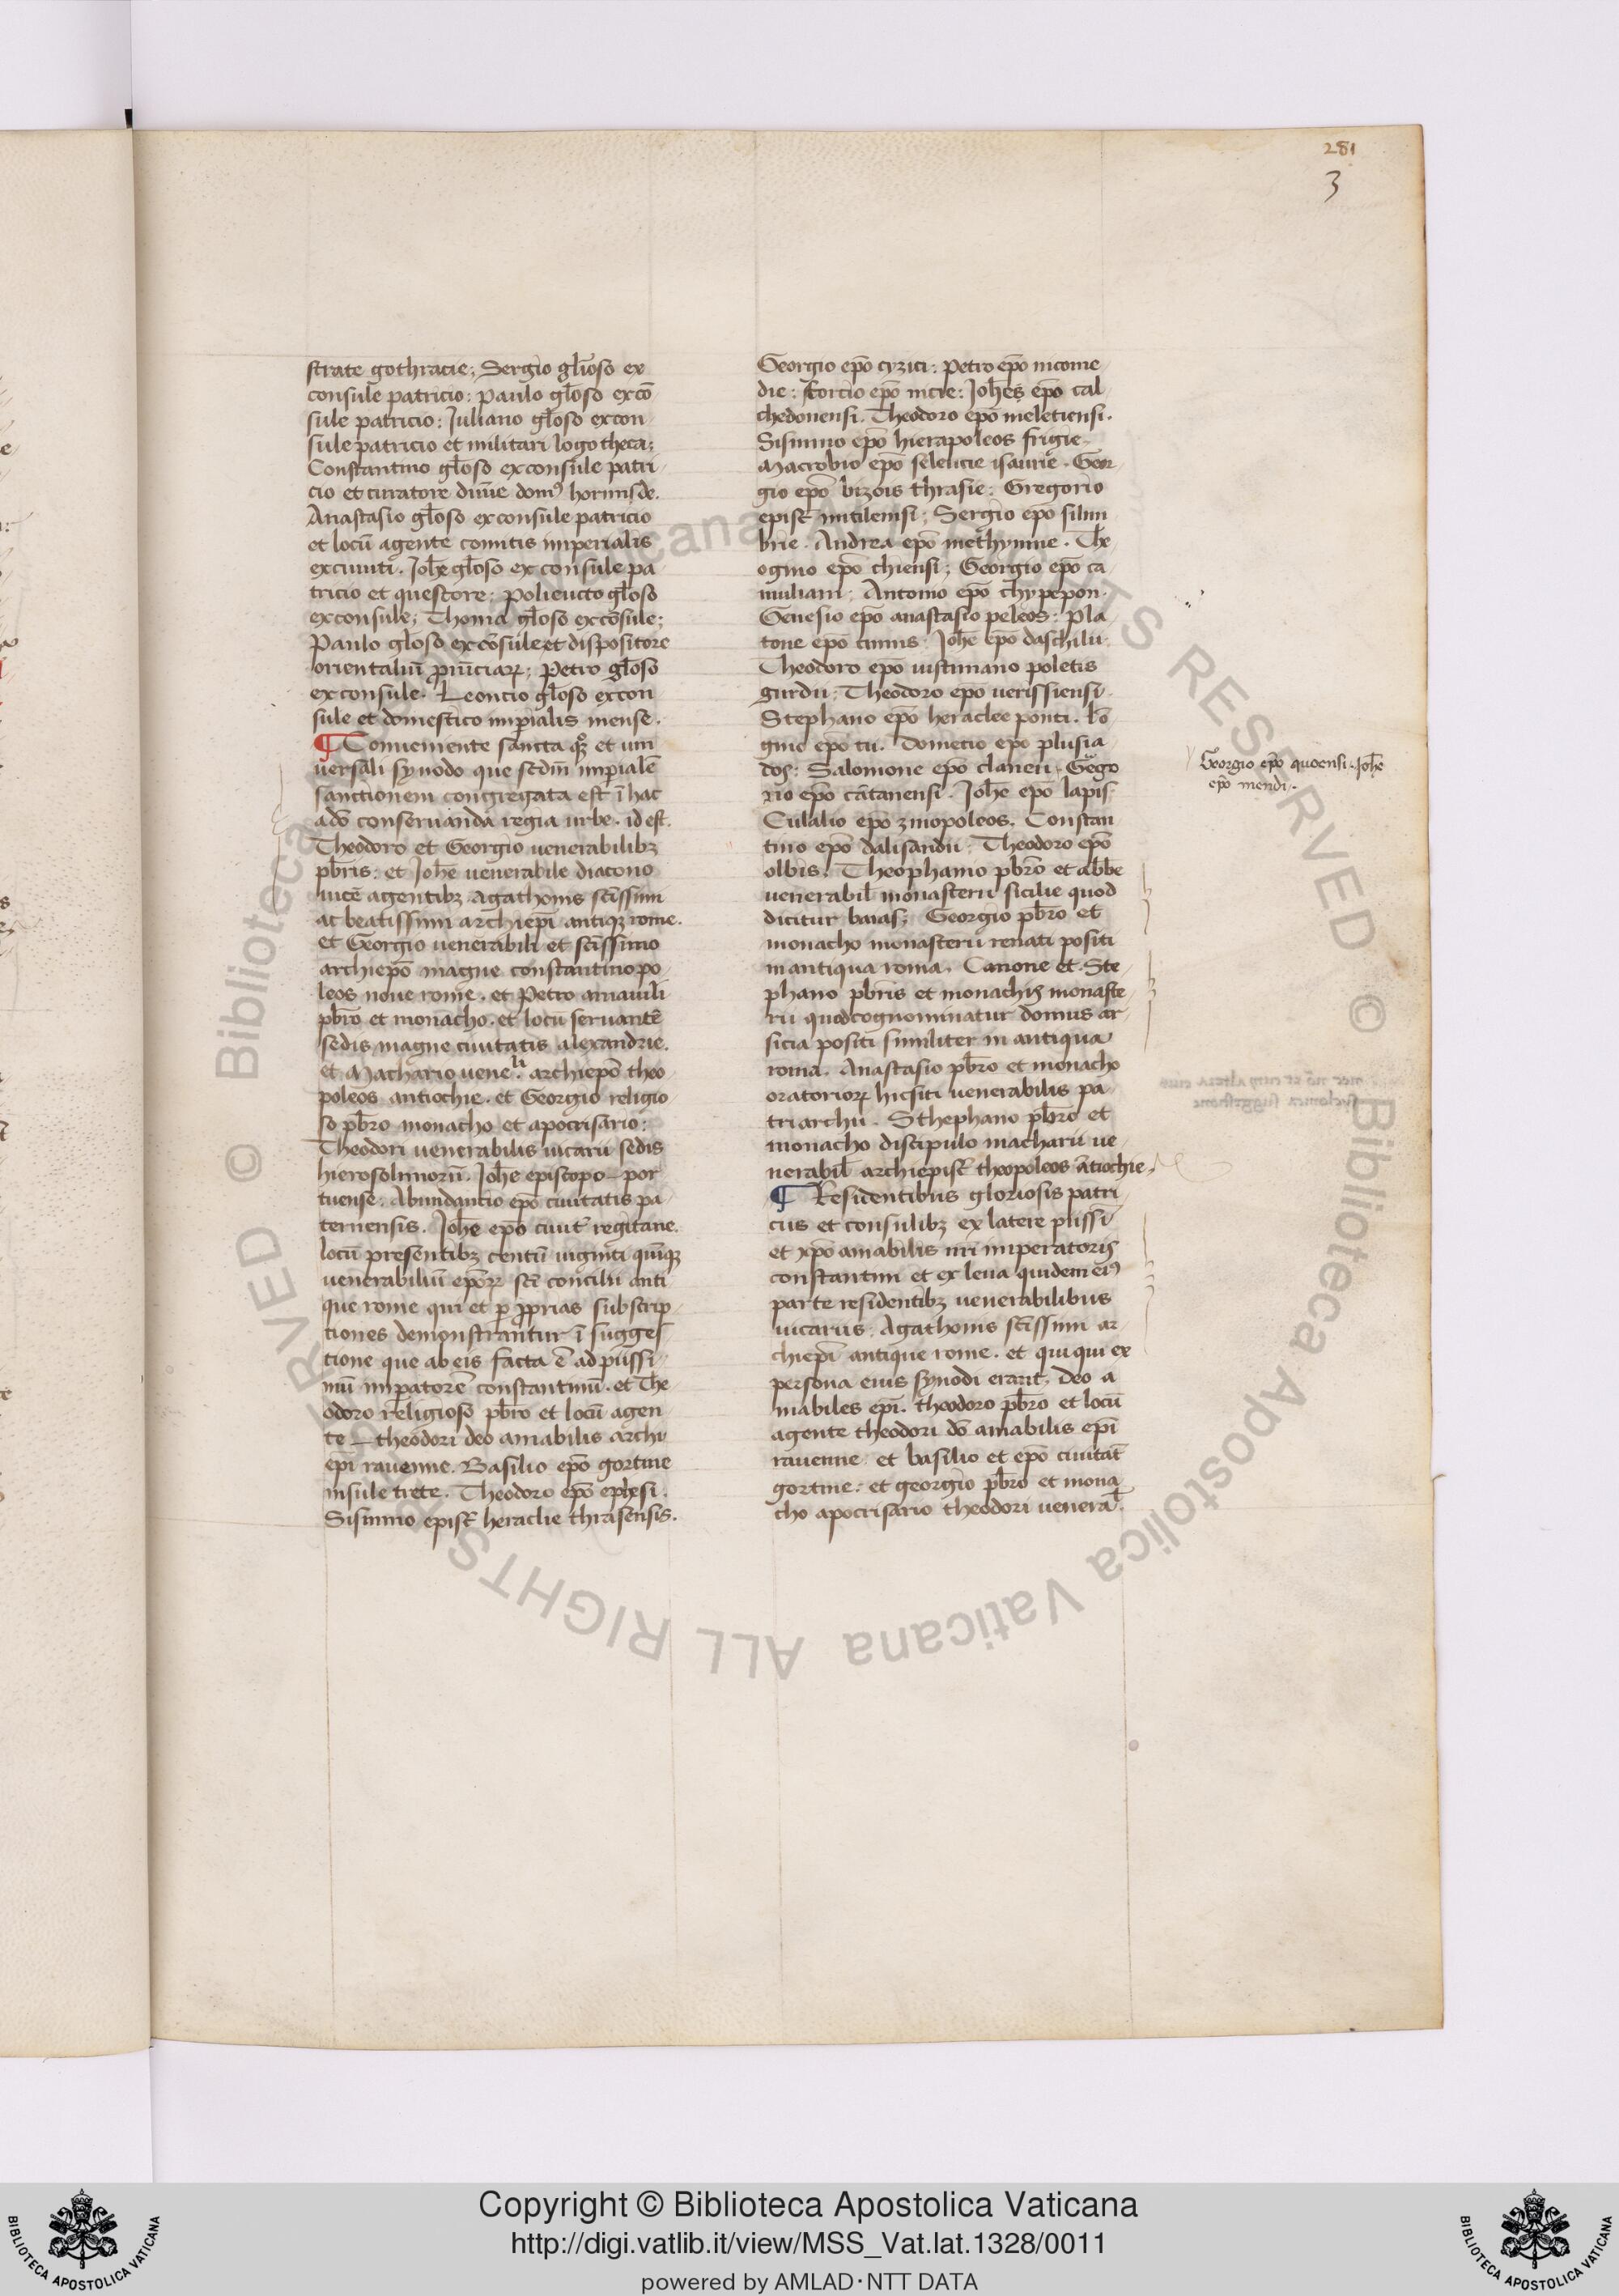 281
3
strate gothracie; Sergio gl̄ioso ex
consule patricio: Paulo gl̄oso excō
sule patricio: Iuliano gl̄oso excon
sule patricio et militari logotheca;
Constantino gl̄oso exconsule patri
cio et curatore diuīe domꝰ hormisde.
Anastasio gl̄oso exconsule patricio
et locū agente comitis imperialis
excuuiti. Ioh̄e gl̄oso ex consule pa
tricio et questore; Polieucto gl̄oso
exconsule; Thoma gl̄oso excōsule;
Paulo gl̄oso excōsule et dispositore
orientaliū ꝓuīciaꝝ; Petro gl̄oso
exconsule. Leoncio gl̄oso excon
sule et domestico imp̄ialis mense.
¶ Conueniente sancta qꝫ et uni
uersali synodo que sedm̄ imp̄ialē
sanctionem congregata est ī hac
a dō conseruanda regia urbe. id est.
Theodoro et Georgio uenerabilibꝫ
pb̄ris: et Ioh̄e uenerabile diacono
uicē agentibꝫ Agathonis sc̄issimi
ac beatissimi archiep̄i antiqꝫ rome.
et Georgio uenerabili et sc̄issimo
archiep̄o magne constantinopo
leos noue rome. et Petro amauili
pb̄ro et monacho. et locū seruantē
sedis magne ciuitatis alexandrie.
et Machario uene li. archiep̄o theo
poleos antiochie. et Georgio religio
so pb̄ro monacho et apocrisario:
Theodori uenerabilis uicarii sedis
hierosolimorū. Ioh̄e episcopo por
tuense. Abundancio ep̄o ciuitatis pa
ternensis. Ioh̄e ep̄o ciuit̄ regitane.
locū presentibꝫ centū uiginti quīqꝫ
uenerabiliū ep̄oꝝ sc̄i concilii anti
que rome qui et ꝑ ꝓprias subscrip
tiones demonstrantur ī sugges
tione que ab eis facta ē ad piissi
mū imp̄atorē constantinū. et The
odoro religioso pb̄ro et locū agen
te theodori deo amabilis archi
ep̄i rauenne. Basilio ep̄o gortine
insule crete. Theodoro ep̄o ephesi.
Sisinnio epist̄ heraclie thrasensis.
Georgio ep̄o cyzici: Petro ep̄o nicome
die: ffocio ep̄o nicie: Ioh̄es ep̄o cal
chedonensi. Theodoro ep̄o meletiensi.
Sisinnio ep̄o hierapoleos frigie.
Macrobio ep̄o seleucie isaurie. Geor
gio ep̄o bizois thrasie: Gregorio
epist̄ mitilensi; Sergio ep̄o silim
brie. Andrea ep̄o methymne. The
ogino ep̄o chiensi; Georgio ep̄o ca
muliani; Antonio ep̄o chypepon.
Genesio ep̄o anastasiopeleos: Pla
tone ep̄o cinnis. Ioh̄e ep̄o daschilii
Theodoro ep̄o iustiniano poletis
gurdii; Theodoro ep̄o uerissiensi
Stephano ep̄o heraclee ponti. Lō
gino ep̄o tii. Domecio ep̄o plusia
dos: Salomone ep̄o claneii. Gego
rio ep̄o cātanensi. Ioh̄e ep̄o lapis
Eulalio ep̄o zinopoleos. Constan
tino ep̄o dalisandii. Theodoro ep̄o
olbis. Theophanio pb̄ro et abbe
uenerabil̄ monasterii sicilie quod
dicitur baias; Georgio pb̄ro et
monacho monasterii renati positi
in antiqua roma. Canone et Ste
phano pb̄ris et monachis monaste
rii quod cognominatur domus ar
sicia positi similiter in antiqua
roma. Anastasio pb̄ro et monacho
oratorioꝝ hicsiti uenerabilis pa
triarchii. Sthephano pb̄ro et
monacho discipulo macharii ue
nerabil̄ archiepist̄ theopoleos ātiochie.
¶ Residentibus gloriosis patri
ciis et consulibꝫ ex latere piissī
et xp̄o amabilis nr̄i imperatoris
constantini et ex leua quidem eiꝰ
parte residentibꝫ uenerabilibus
uicariis. Agathonis sc̄issimi ar
chiep̄i antique rome. et qui qui ex
persona eius synodi erant. deo a
mabiles ep̄i. theodoro pb̄ro et locū
agente theodori dō amabilis ep̄i
rauenne. et basilio et ep̄o ciuitat̄
gortine. et georgio pb̄ro et mona
cho apocrisario theodori uenera l̄.
Georgio ep̄o quoensi. Ioh̄e
ep̄o mendi.
Copyright © Biblioteca Apostolica Vaticana
http://digi.vatlib.it/view/MSS_Vat.lat.1328/0011
powered by AMLAD·NTT DATA
BIBLIOTECA APOSTOLICA VATICANA
BIBLIOTECA APOSTOLICA VATICANA